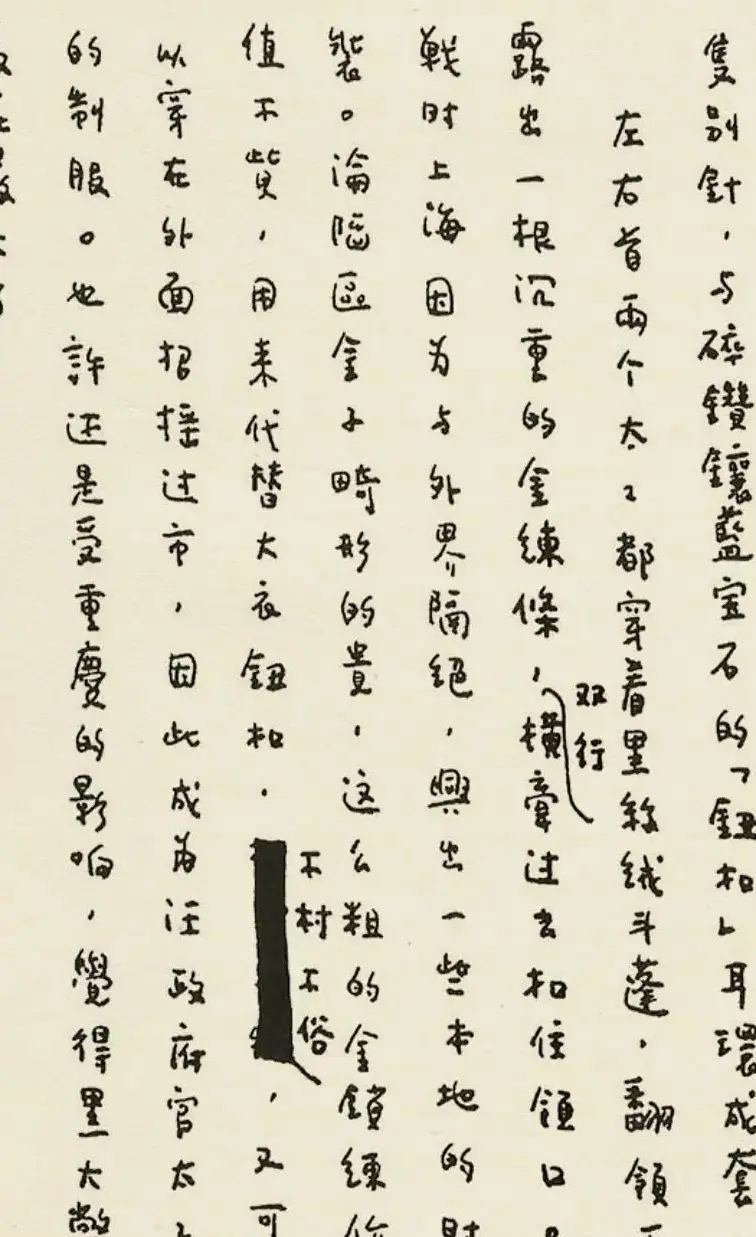 隻别針，与碎鑽鑲藍宝石的「鈕扣」耳環成套
左右首兩个太〻都穿着黑絲絨斗蓬，翻領下
露出一根沉重的金練條，双行橫牽过去扣住領口。
戰时上海因为与外界隔絕，興出一些本地的时
裝。淪陷區金子畸形的貴，这么粗的金鎖練
值不貲，用来代替大衣鈕扣，不村不俗，又可
以穿在外面招搖过市，因此成为汪政府官太〻
的制服。也許还是受重慶的影响，覺得黑大氅